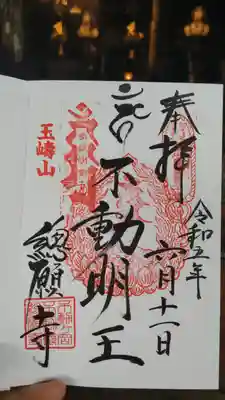 奉拝
令和五年
六月十一日
不動明王
玉嶹山
總願寺